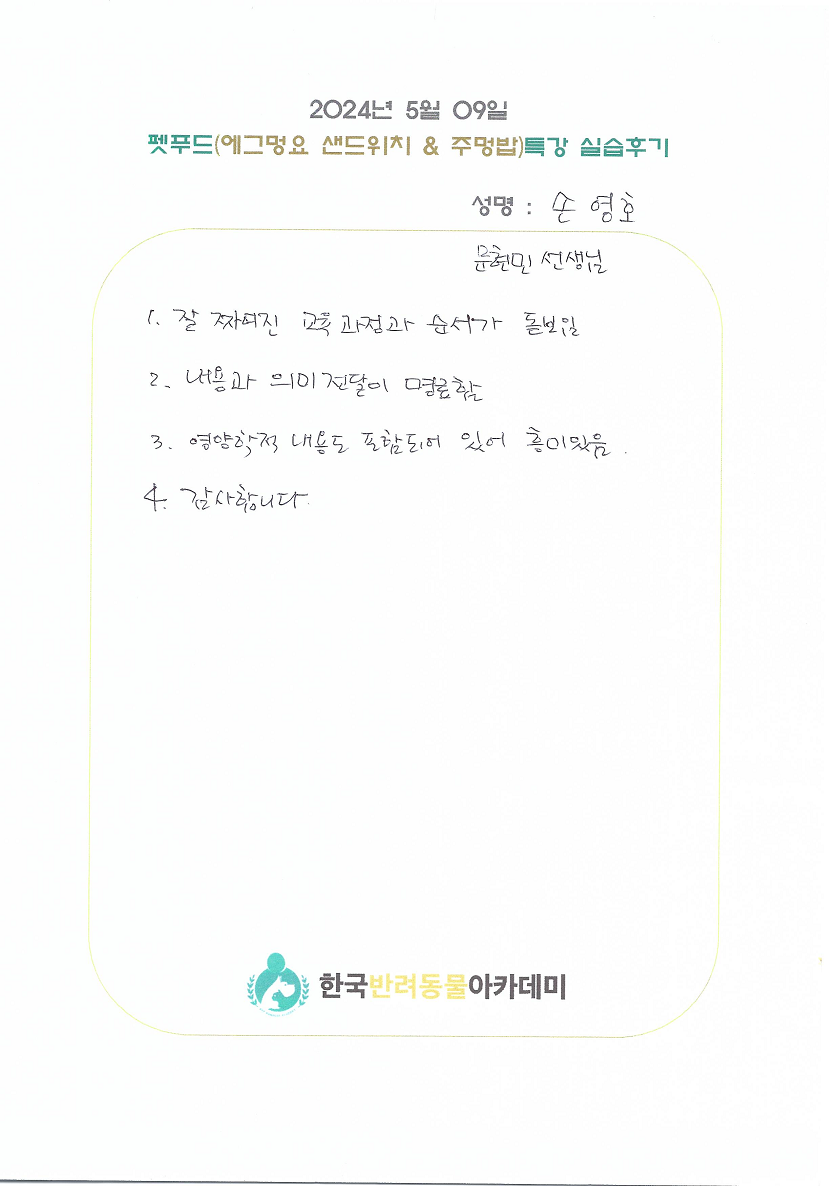 2024년 5월 09일
펫푸드(에그멍요 샌드위치 & 주멍밥)특강 실습후기
성명 : 손영호
문현민 선생님
1. 잘 짜여진 교육과정과 순서가 돋보임
2. 내용과 의미전달이 명료함
3. 영양학적 내용도 포함되어 있어 흥미있음.
4. 감사합니다.
한국반려동물아카데미